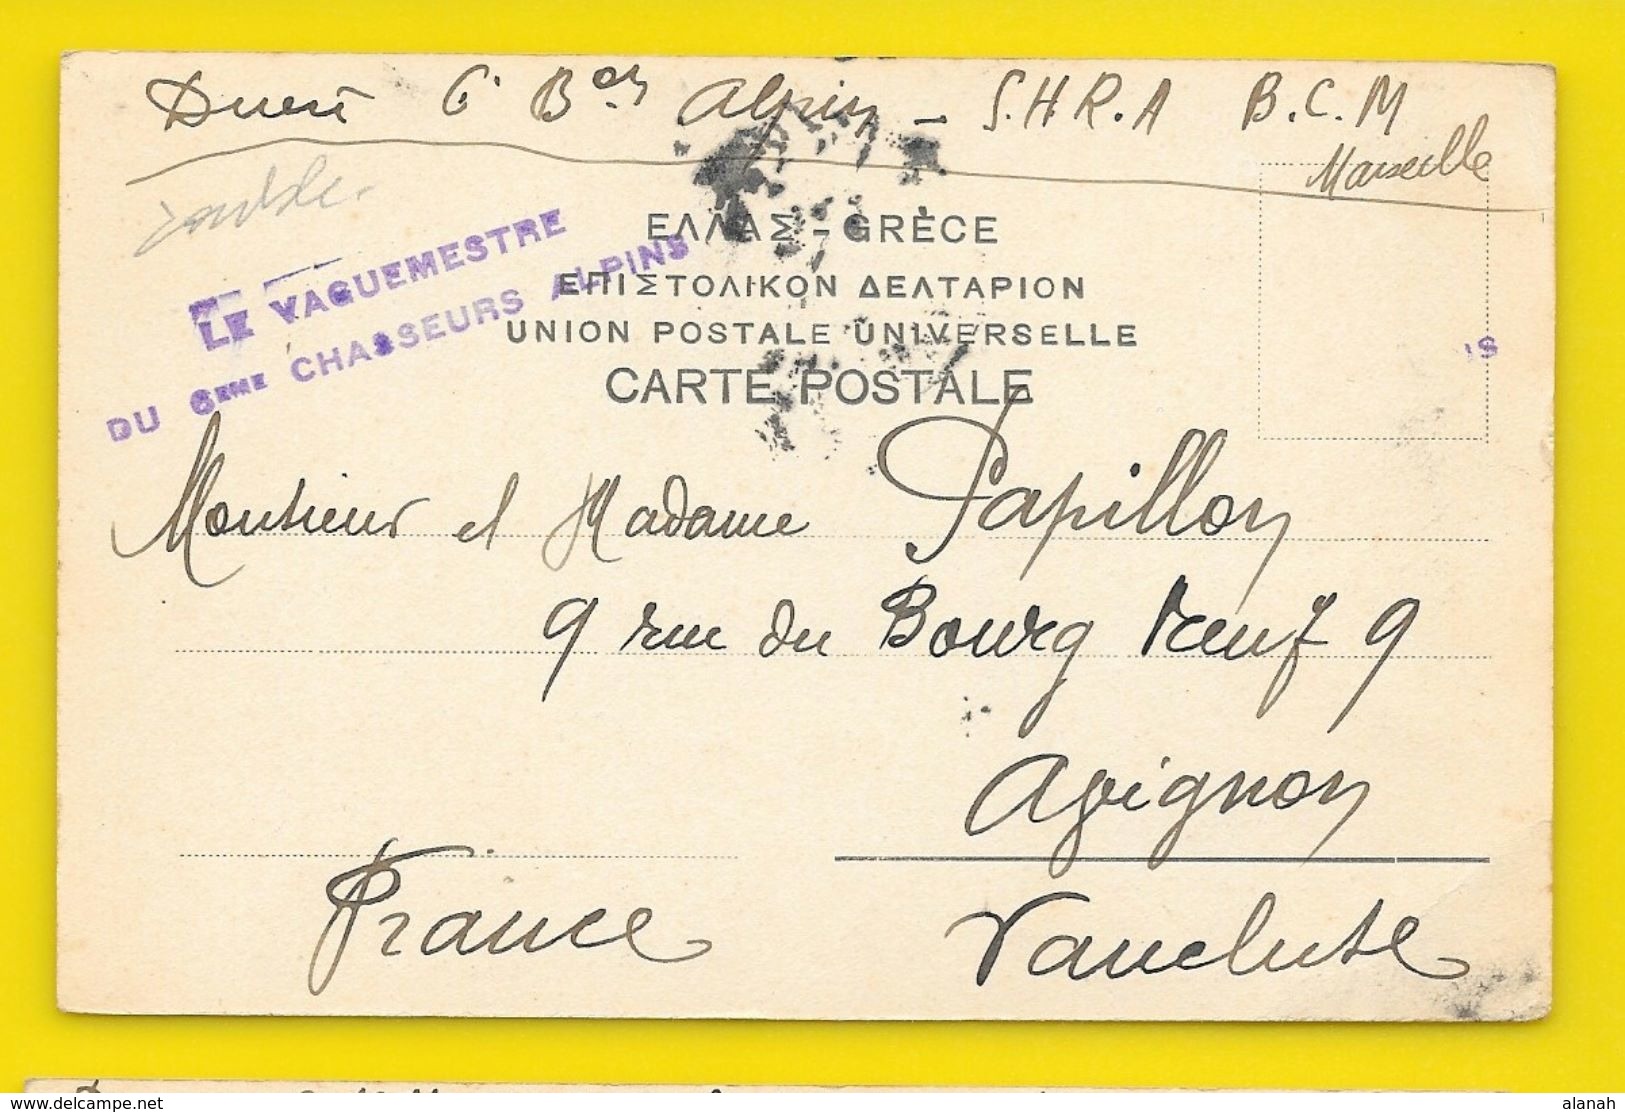 6e Bon Alpin - S.H.R.A B.C.M
Marseille
LE VAGUEMESTRE
DU 6EME CHASSEURS ALPINS
ΕΛΛΑΣ - GRÈCE
ΕΠΙΣΤΟΛΙΚΟΝ ΔΕΛΤΑΡΙΟΝ
UNION POSTALE UNIVERSELLE
CARTE POSTALE
IS
Monsieur et Madame Papillon
9 rue du Bourg Neuf 9
Avignon
France
Vaucluse
delcampe.net
alanah